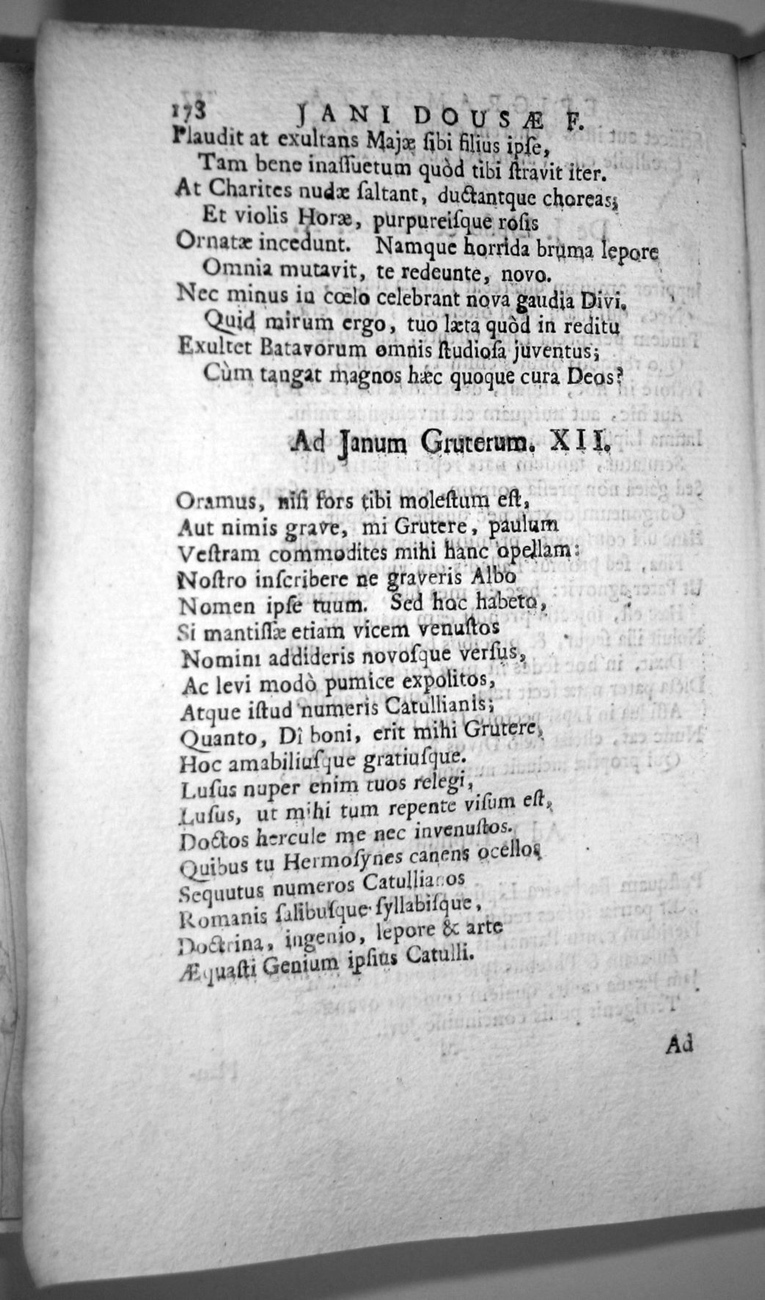 178 JANI DOUSÆ F.
Plaudit at exultans Majæ ſibi filius ipſe,
Tam bene inaſſuetum quòd tibi ſtravit iter.
At Charites nudæ ſaltant, ductantque choreas;
Et violis Horæ, purpureiſque roſis
Ornatæ incedunt. Namque horrida bruma lepore
Omnia mutavit, te redeunte, novo.
Nec minus in cœlo celebrant nova gaudia Divi.
Quid mirum ergo, tuo læta quòd in reditu
Exultet Batavorum omnis ſtudioſa juventus;
Cùm tangat magnos hæc quoque cura Deos?
Ad Janum Gruterum. XII.
Oramus, niſi fors tibi moleſtum eſt,
Aut nimis grave, mi Grutere, paulum
Veſtram commodites mihi hanc opellam:
Noſtro inſcribere ne graveris Albo
Nomen ipſe tuum. Sed hoc habeto,
Si mantiſſæ etiam vicem venuſtos
Nomini addideris novoſque verſus,
Ac levi modò pumice expolitos,
Atque iſtud numeris Catullianis;
Quanto, Dî boni, erit mihi Grutere,
Hoc amabiliuſque gratiuſque.
Luſus nuper enim tuos relegi,
Luſus, ut mihi tum repente viſum eſt,
Doctos hercule me nec invenuſtos.
Quibus tu Hermoſynes canens ocellos
Sequutus numeros Catullianos
Romanis ſalibuſque ſyllabiſque,
Doctrina, ingenio, lepore & arte
Æquaſti Genium ipſius Catulli.
Ad